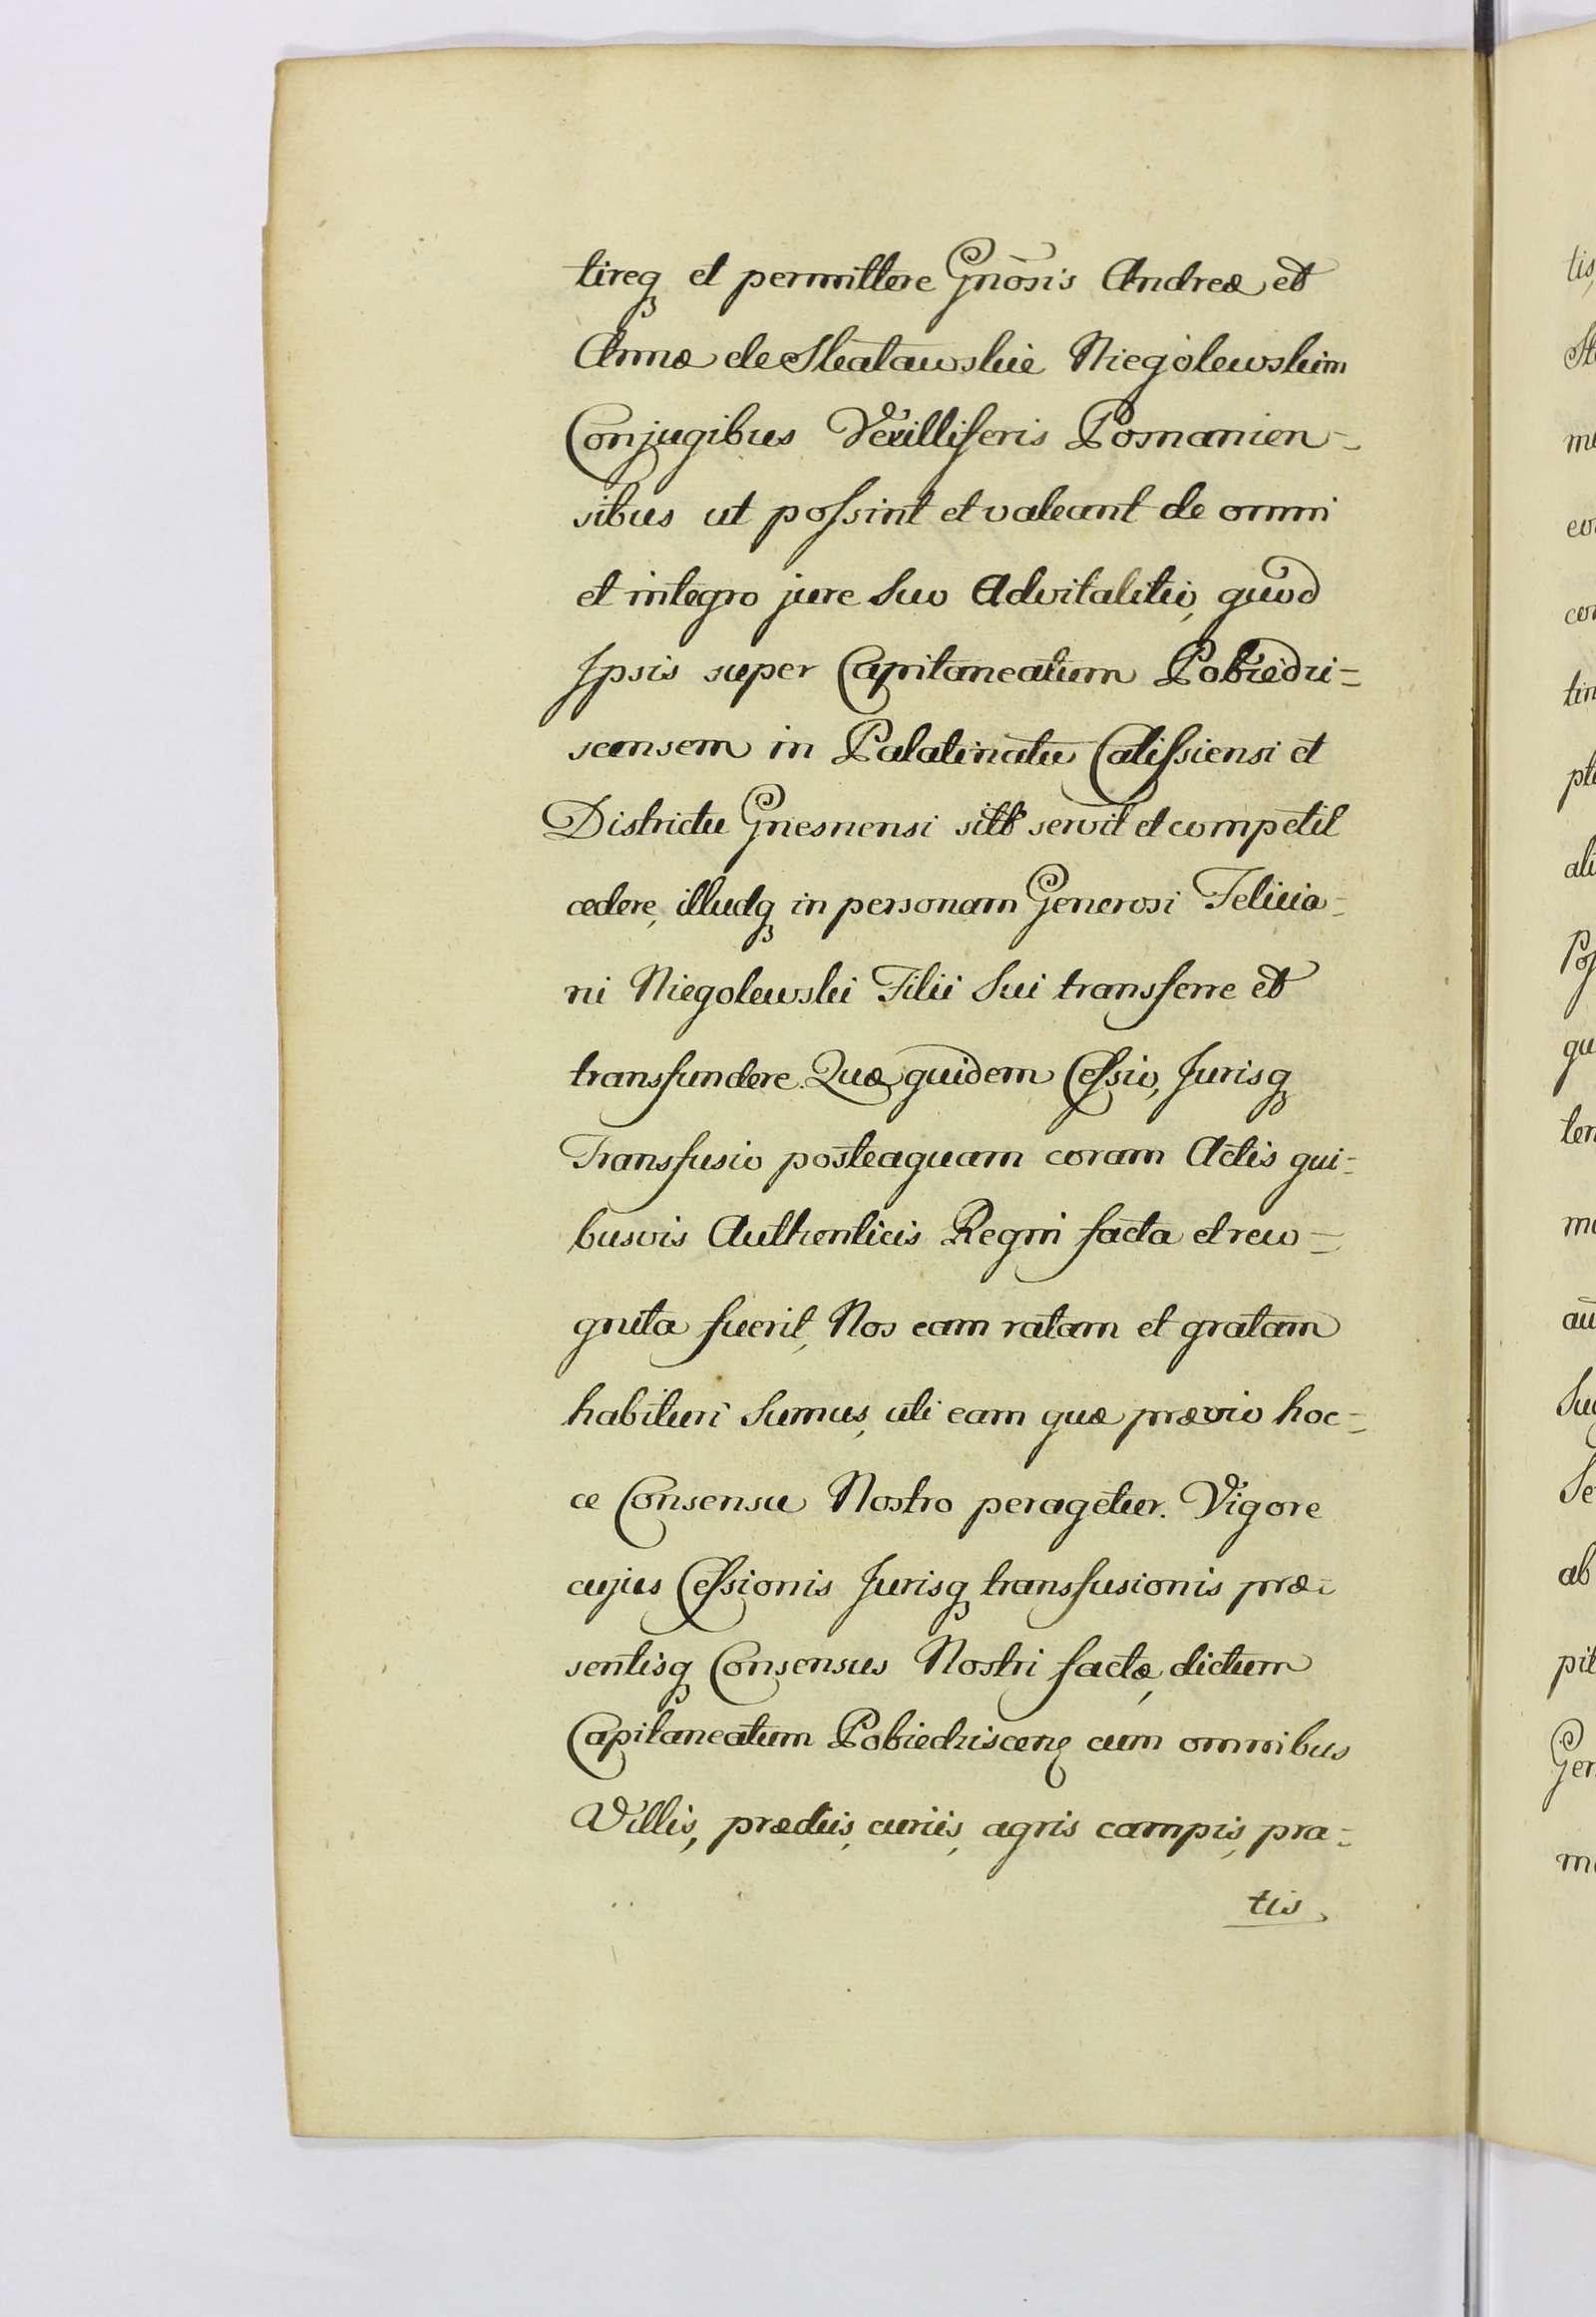 tireq et permittere Gnõsis Andreæ et
Annæ de Skałławskie Niegolewskim
Conjugibus Vexilliferis Posnanien-
sibus ut possint et valeant de omni
et integro jure Suo Advitalitio, quod
Ipsis super Capitaneatum Pobiedzi-
scensem in Palatinatu Calissiensi et
Districtu Gnesnensi sitū servit et competit
cedere, illudq in personam Generosi Felicia-
ni Niegolewski Filii Sui transferre et
transfundere. Quæ quidem Cessio, Jurisq
Transfusio posteaquam coram Actis qui-
busvis Authenticis Regni facta et reco-
gnita fuerit, Nos eam ratam et gratam
habituri Sumus, uti eam quæ prævio hoc-
ce Consensu Nostro peragetur. Vigore
cujus Cessionis Jurisq transfusionis præ-
sentisq Consensus Nostri factæ, dictum
Capitaneatum Pobiedziscen cum omnibus
Villis, prædiis, curiis, agris campis, pra-
tis
tis,
me
tin
ali
qu
ten
ab
pit
Gen